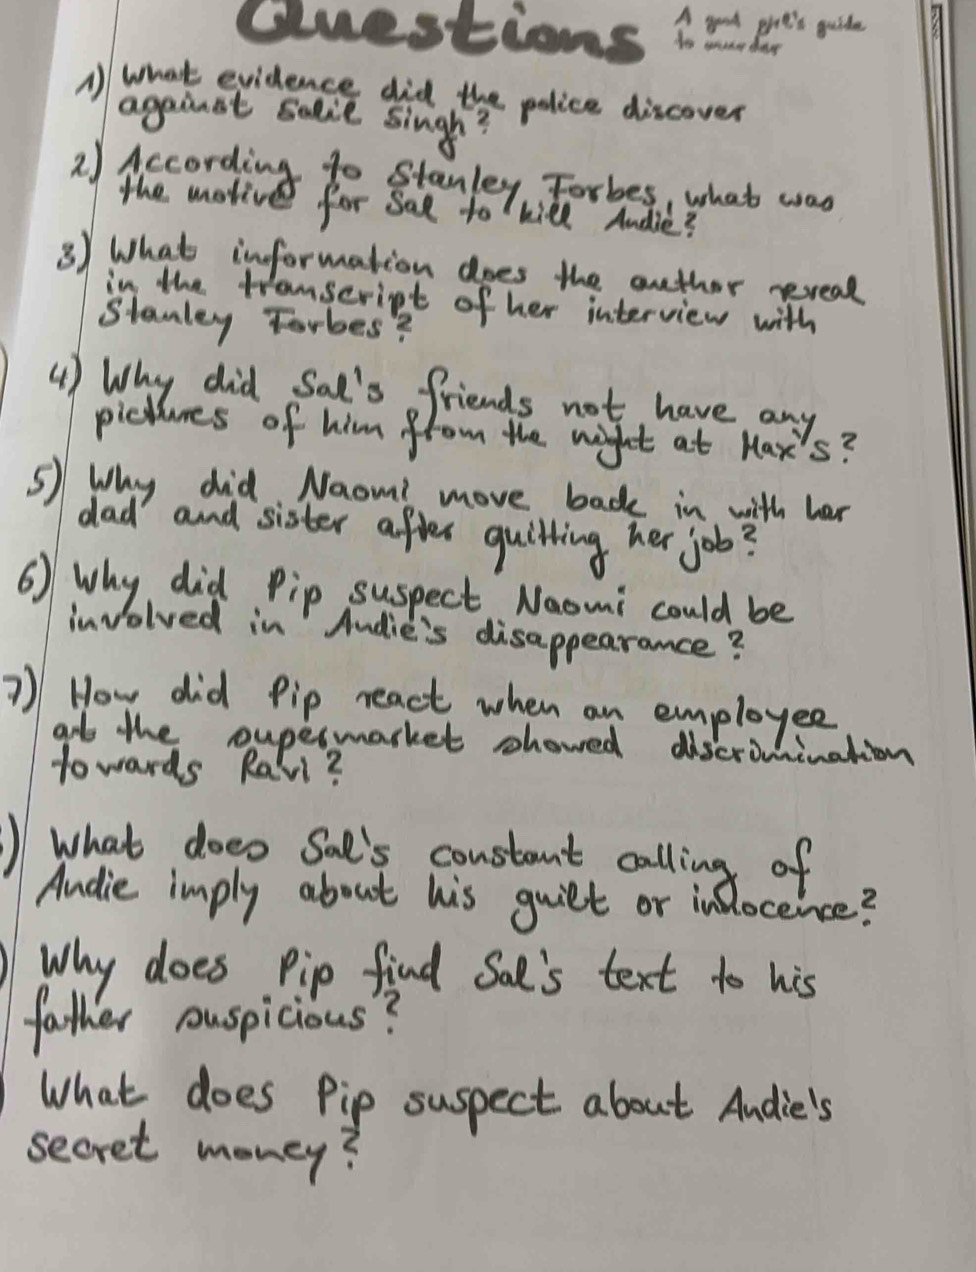 Questions
A good girl's guide
to murder
1) What evidence did the police discover
against Salil Singh?
2) According to Stanley Forbes, what was
the motive for Sal to kill Andie?
3) What information does the author reveal
in the transcript of her interview with
Stanley Forbes?
4) Why did Sal's friends not have any
pictures of him from the night at Max's?
5) Why did Naomi move back in with her
dad and sister after quitting her job?
6) Why did Pip suspect Naomi could be
involved in Andie's disappearance?
7) How did Pip react when an employee
at the supermarket showed discrimination
towards Ravi?
) What does Sal's constant calling of
Andie imply about his guilt or innocence?
) Why does Pip find Sal's text to his
father suspicious?
) What does Pip suspect about Andie's
secret money?